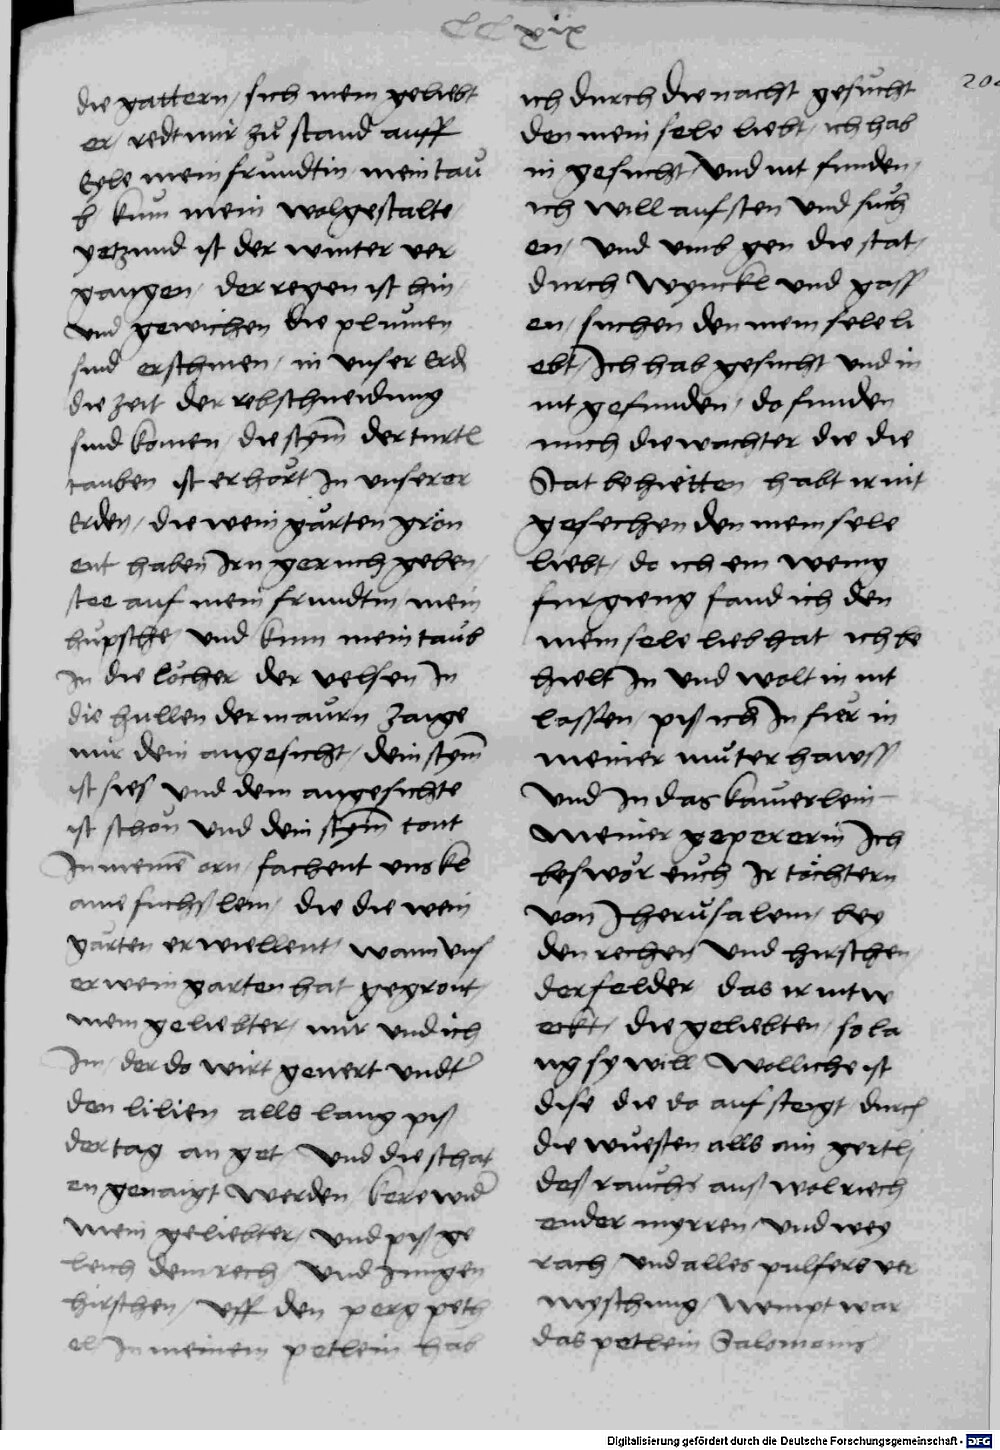 CCxix
204
die gattern / sich mein geliebt
er / redt mir zů stand auff
Eyle mein frundtin mein tau
b kum mein wolgestalte /
yetzund ist der winter ver
gangen / der regen ist hin /
und gewichen die plumen
sind erschinen / in unser Erd
die zeit der rebschneidung
sind komen / die stym̄ der turtl
tauben ist erhört In unserer
Erden / die weingärten grön
ent haben Irn geruch geben /
stee auf mein frundtin mein
hüpsche / und kum mein taub
In die löcher der velsen In
die hullen der maurn zaige
mir dein angesicht / dein stym̄
ist sies und dein angesichte
ist schon und dein stym̄ tont
In meinē orn / fachent uns kl
aine fuchslein / die die wein
gärten erwiellent / wann uns
er weingarten hat gegront /
mein geliebter / mir und ich
Im / der do wirt genert undt̄
den lilien alls lang piß
der tag an get / und die schat
en genaigt werden kere wid̄
mein geliebter / und piß ge
leich dem rech / und Jungen
hirschen / uff den perg peth
el In meinem petlein hab
ich durch die nacht gesucht
den mein sele liebt / ich hab
in gesucht / und nit funden /
ich will aufsten und such
en / und umb gen die stat /
durch wynckl und gass
en / suchen den mein sele li
ebt / Ich hab gesucht und in
nit gefunden / do funden
mich die wachter die die
Stat behietten habt ir nit
gesechen den mein sele
liebt / do ich ein wenig
furgieng fand ich den
mein sele lieb hat ich be
hielt In und wolt in nit
lassen / piß ich In fier in
meiner muter hawss
und In das kamerlein
meiner gepererin Ich
beswör euch Ir töchtern
von Jherusalem / bey
den rechen und hirschen /
der felder das ir nit w
eckt / die geliebten / so la
ng sy will Wolliche ist
dise die do auf steigt durch
die wuesten alls ain gertl
deß rauchs auß wolriech
ender myrren / und wey
rach / und alles pulfers ver
myschung / Nempt war
das petlein Salomonis
Digitalisierung gefördert durch die Deutsche Forschungsgemeinschaft - DFG